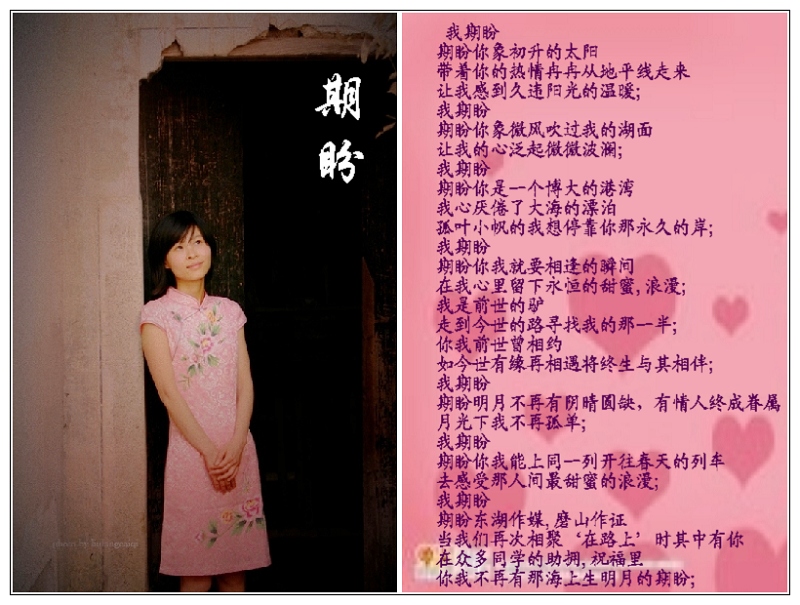 期盼
我期盼
期盼你象初升的太阳
带着你的热情冉冉从地平线走来
让我感到久违阳光的温暖;
我期盼
期盼你象微风吹过我的湖面
让我的心泛起微微波澜;
我期盼
期盼你是一个博大的港湾
我心厌倦了大海的漂泊
孤叶小帆的我想停靠你那永久的岸;
我期盼
期盼你我就要相逢的瞬间
在我心里留下永恒的甜蜜,浪漫;
我是前世的驴
走到今世的路寻找我的那一半;
你我前世曾相约
如今世有缘再相遇将终生与其相伴;
我期盼
期盼明月不再有阴晴圆缺，有情人终成眷属
月光下我不再孤单;
我期盼
期盼你我能上同一列开往春天的列车
去感受那人间最甜蜜的浪漫;
我期盼
期盼东湖作媒,磨山作证
当我们再次相聚‘在路上’时其中有你
在众多同学的助拥,祝福里
你我不再有那海上生明月的期盼;
photo by